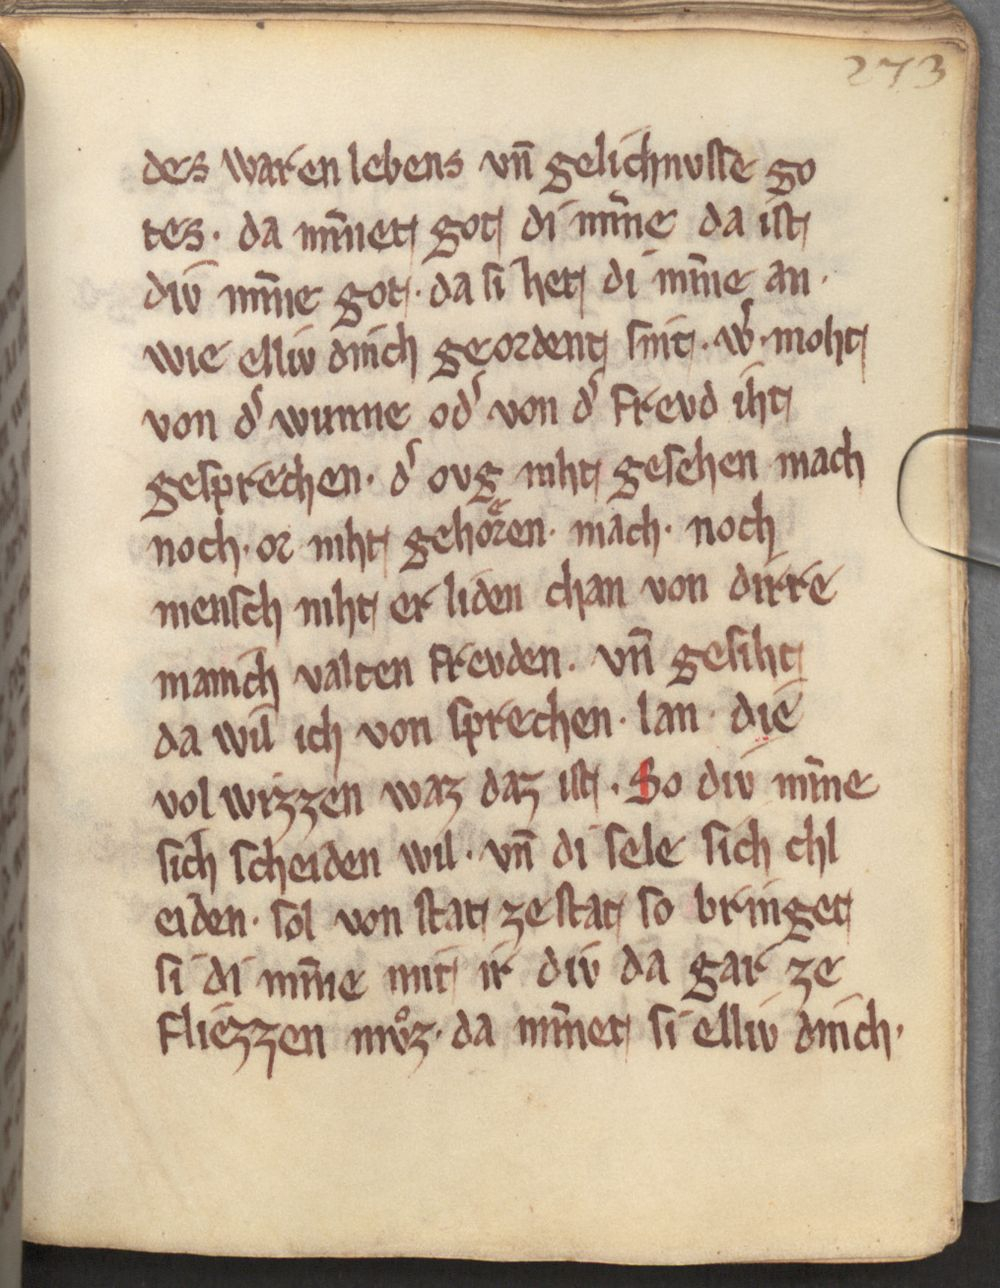 273
des waren lebens vn̄ gelichnusse go
tes. da mīnet got di mīne da ist
div mīne got. da si het di mīne an.
wie elliv dinch geordent sint. w͛. moht
von d͛ wunne od͛ von d͛ frevd iht
gesprechen. d͛ ovg niht gesehen mach
noch. or niht gehoͤren. mach. noch
mensch niht er liden chan von dirre
manich valten frevden. vn̄ gesiht
da wil ich von sprechen. lan. die
vol wizzen waz daz ist. So div mīne
sich scheiden wil. vn̄ di sele sich chl
eiden. sol von stat ze stat so bringet
si di mīne mit ir div da gar ze
fliezzen mvͦz. da mīnet si elliv dinch.